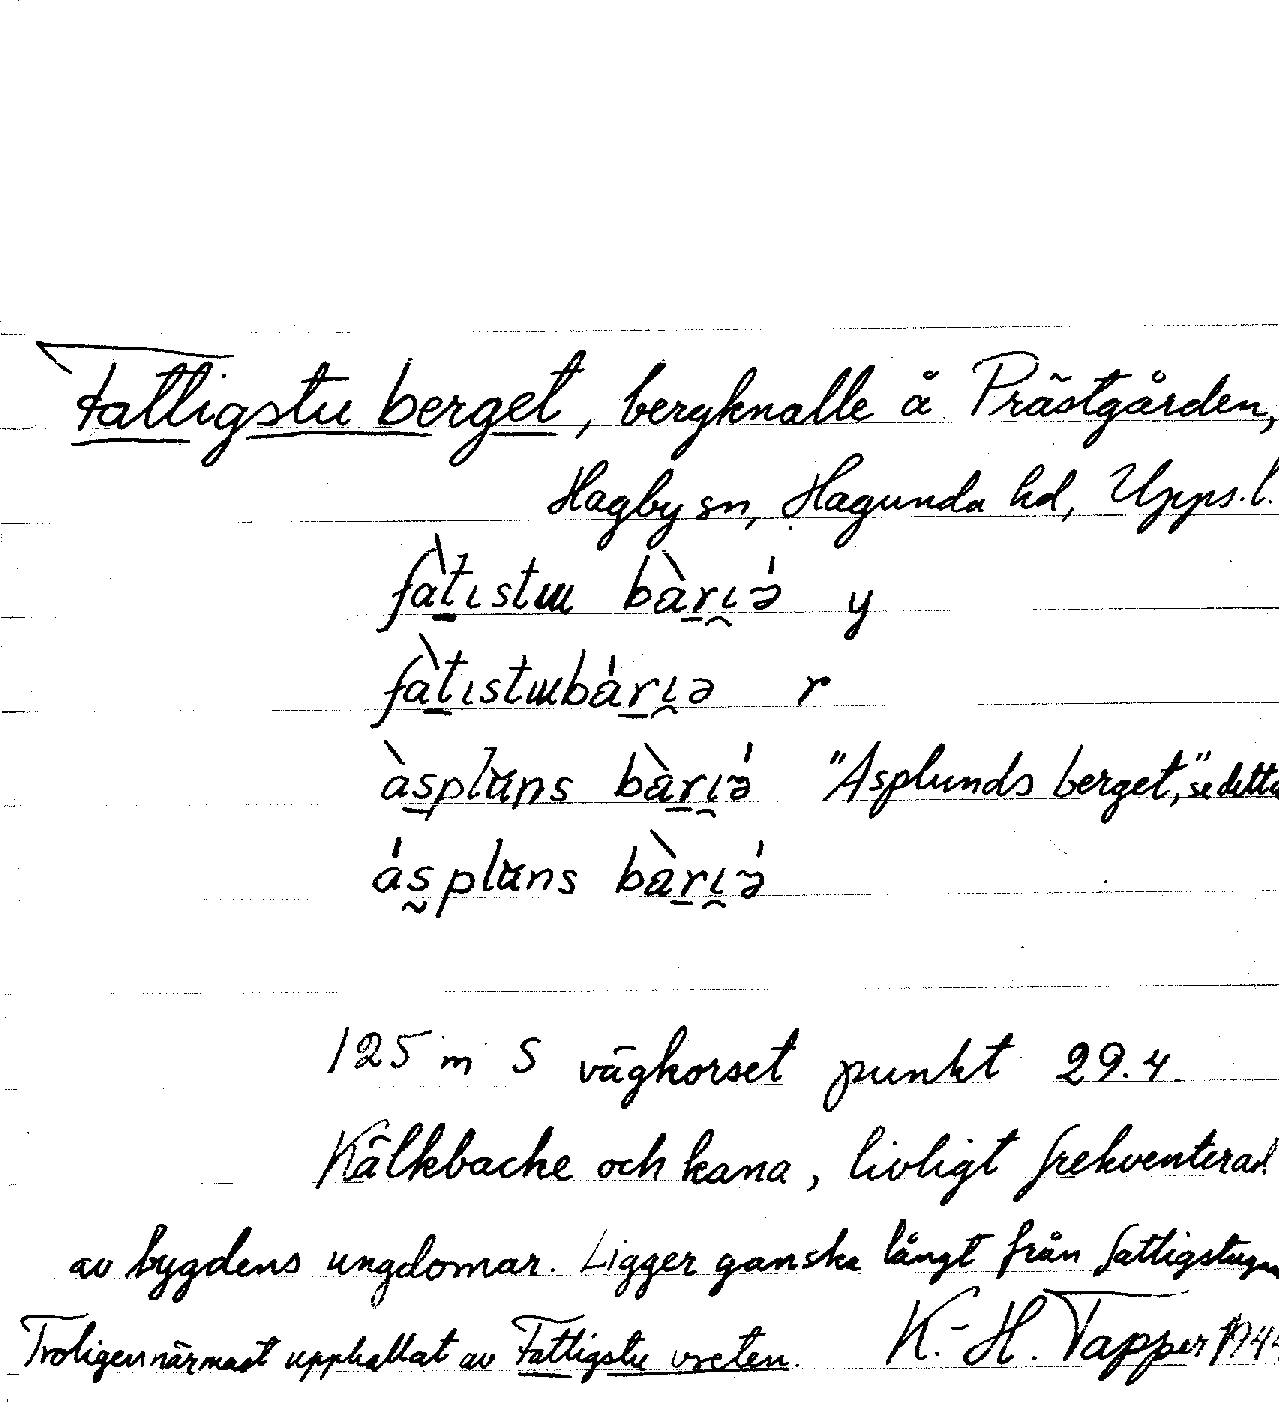 Fattigstu berget, bergknalle å Prästgården,
Hagby sn, Hagunda hd, Upps. l.
fàt̠ɩstɯ bàr̠ɩ̯ə́ y
fàt̠ɩstɯbár̠ɩ̯ə r
às̠pluns bàr̠ɩ̯ə́ "Asplunds berget," se detta
ás̰pluns bàr̠ɩ̯ə́
125 m S vägkorset punkt 29.4.
Kälkbacke och kana, livligt frekventerad
av bygdens ungdomar. Ligger ganska långt från fattigstugan
Troligen närmast uppkallat av Fattigstu vreten. K.-H. Tapper